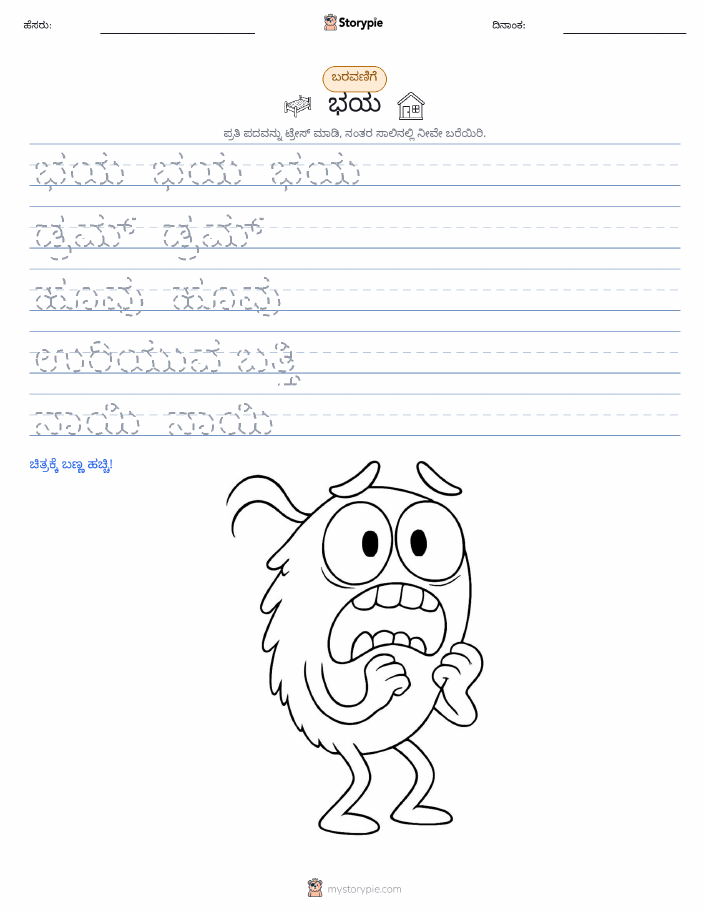 ಹೆಸರು: Storypie ದಿನಾಂಕ:
ಬರವಣಿಗೆ
ಭಯ
ಪ್ರತಿ ಪದವನ್ನು ಟ್ರೇಸ್ ಮಾಡಿ, ನಂತರ ಸಾಲಿನಲ್ಲಿ ನೀವೇ ಬರೆಯಿರಿ.
ಭಯ ಭಯ ಭಯ
ಡ್ರಮ್ ಡ್ರಮ್
ಹೂವು ಹೂವು
ಉರಿಯುವ ಬತ್ತಿ
ನಾಯಿ ನಾಯಿ
ಚಿತ್ರಕ್ಕೆ ಬಣ್ಣ ಹಚ್ಚಿ!
mystorypie.com